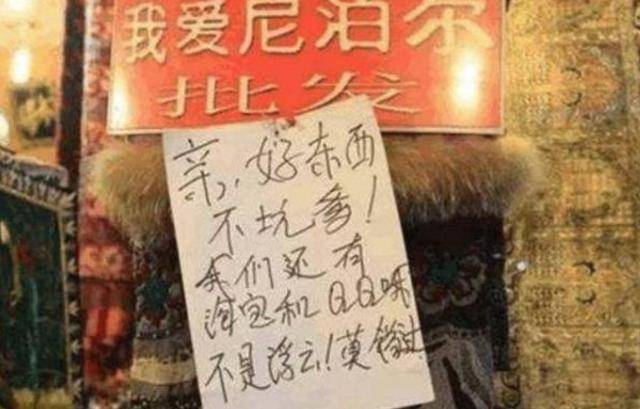 我爱尼泊尔
批发
亲,好东西
不坑爹!
我们还有
淘宝和QQ呀
不是浮云!莫错过